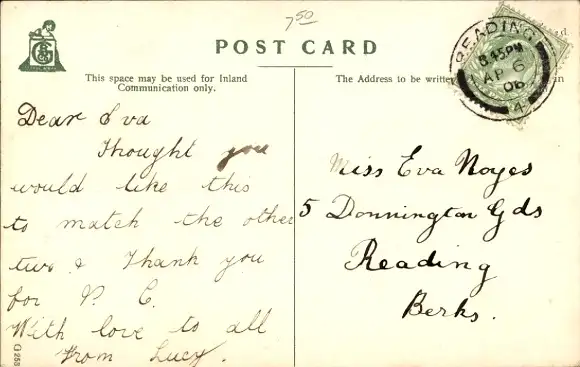 7.50
POST CARD
This space may be used for Inland
Communication only.
The Address to be writte
in
READING
8.45PM
AP 6
06
4
Dear Eva
Thought you
would like this
to match the other
two & Thank you
for P. C.
With love to all
From Lucy.
Miss Eva Noyes
5 Donnington Gds
Reading
Berks.
G 253